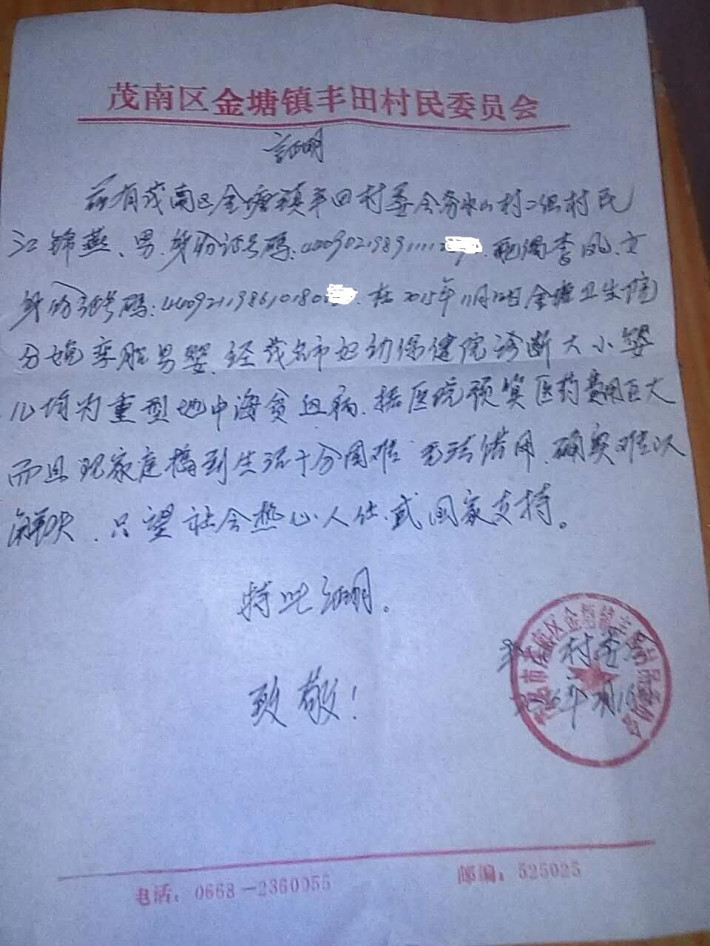 茂南区金塘镇丰田村民委员会
证明
兹有茂南区金塘镇丰田村委会 山村二组村民
江锦燕、男、身份证号码:440902198911112 配偶李凤、女
身份证号码:440921198610180 在2015年11月12日金塘卫生院
分娩孪胎男婴、经茂名市妇幼保健院诊断大小婴
儿均为重型地中海贫血病、据医院预算医药费用巨大
而且现家庭搞到生活十分困难 无法借用、确实难以
解决、只望社会热心人仕或国家支持。
特此证明。
致敬!
村委
年 月
电话:0668-2360055
邮编:525025